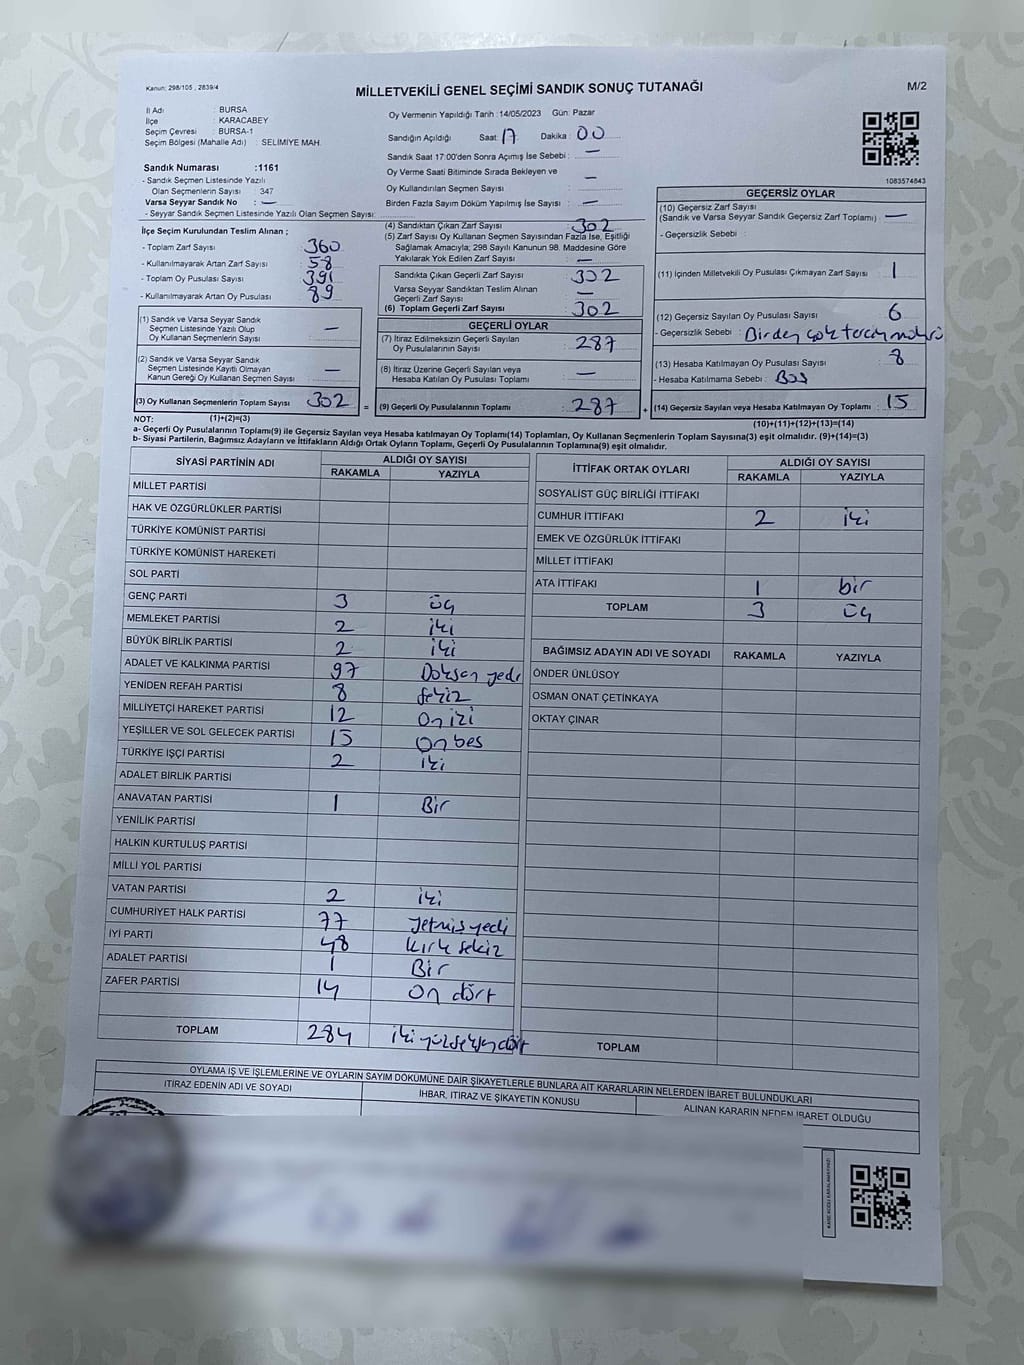 Kanun: 298/105 , 2839/4
MİLLETVEKİLİ GENEL SEÇİMİ SANDIK SONUÇ TUTANAĞI
M/2
İl Adı : BURSA
İlçe : KARACABEY
Seçim Çevresi : BURSA-1
Seçim Bölgesi (Mahalle Adı) : SELİMİYE MAH.
Sandık Numarası :1161
- Sandık Seçmen Listesinde Yazılı
Olan Seçmenlerin Sayısı : 347
Varsa Seyyar Sandık No : —
- Seyyar Sandık Seçmen Listesinde Yazılı Olan Seçmen Sayısı:
Oy Vermenin Yapıldığı Tarih :14/05/2023 Gün: Pazar
Sandığın Açıldığı Saat: 17 Dakika: 00
Sandık Saat 17:00'den Sonra Açımış İse Sebebi : —
Oy Verme Saati Bitiminde Sırada Bekleyen ve
Oy Kullandırılan Seçmen Sayısı : —
Birden Fazla Sayım Döküm Yapılmış İse Sayısı : —
1083574843
İlçe Seçim Kurulundan Teslim Alınan ;
- Toplam Zarf Sayısı : 360
- Kullanılmayarak Artan Zarf Sayısı : 58
- Toplam Oy Pusulası Sayısı : 391
- Kullanılmayarak Artan Oy Pusulası : 89
(1) Sandık ve Varsa Seyyar Sandık
Seçmen Listesinde Yazılı Olup
Oy Kullanan Seçmenlerin Sayısı : —
(2) Sandık ve Varsa Seyyar Sandık
Seçmen Listesinde Kayıtlı Olmayan
Kanun Gereği Oy Kullanan Seçmen Sayısı : —
(3) Oy Kullanan Seçmenlerin Toplam Sayısı : 302 =
(4) Sandıktan Çıkan Zarf Sayısı : 302
(5) Zarf Sayısı Oy Kullanan Seçmen Sayısından Fazla İse, Eşitliği
Sağlamak Amacıyla; 298 Sayılı Kanunun 98. Maddesine Göre
Yakılarak Yok Edilen Zarf Sayısı : —
Sandıkta Çıkan Geçerli Zarf Sayısı : 302
Varsa Seyyar Sandıktan Teslim Alınan
Geçerli Zarf Sayısı : —
(6) Toplam Geçerli Zarf Sayısı : 302
GEÇERLİ OYLAR
(7) İtiraz Edilmeksizin Geçerli Sayılan
Oy Pusulalarının Sayısı : 287
(8) İtiraz Üzerine Geçerli Sayılan veya
Hesaba Katılan Oy Pusulası Toplamı : —
(9) Geçerli Oy Pusulalarının Toplamı : 287 +
GEÇERSİZ OYLAR
(10) Geçersiz Zarf Sayısı
(Sandık ve Varsa Seyyar Sandık Geçersiz Zarf Toplamı) : —
- Geçersizlik Sebebi :
(11) İçinden Milletvekili Oy Pusulası Çıkmayan Zarf Sayısı : 1
(12) Geçersiz Sayılan Oy Pusulası Sayısı : 6
- Geçersizlik Sebebi : Birden çok tercih mührü
(13) Hesaba Katılmayan Oy Pusulası Sayısı : 8
- Hesaba Katılmama Sebebi : Boş
(14) Geçersiz Sayılan veya Hesaba Katılmayan Oy Toplamı : 15
NOT: (1)+(2)=(3)
(10)+(11)+(12)+(13)=(14)
a- Geçerli Oy Pusulalarının Toplamı(9) ile Geçersiz Sayılan veya Hesaba katılmayan Oy Toplamı(14) Toplamları, Oy Kullanan Seçmenlerin Toplam Sayısına(3) eşit olmalıdır. (9)+(14)=(3)
b- Siyasi Partilerin, Bağımsız Adayların ve İttifakların Aldığı Ortak Oyların Toplamı, Geçerli Oy Pusulalarının Toplamına(9) eşit olmalıdır.
SİYASİ PARTİNİN ADI ALDIĞI OY SAYISI
RAKAMLA YAZIYLA
MİLLET PARTİSİ
HAK VE ÖZGÜRLÜKLER PARTİSİ
TÜRKİYE KOMÜNİST PARTİSİ
TÜRKİYE KOMÜNİST HAREKETİ
SOL PARTİ
GENÇ PARTİ 3 üç
MEMLEKET PARTİSİ 2 iki
BÜYÜK BİRLİK PARTİSİ 2 iki
ADALET VE KALKINMA PARTİSİ 97 Doksan yedi
YENİDEN REFAH PARTİSİ 8 sekiz
MİLLİYETÇİ HAREKET PARTİSİ 12 On iki
YEŞİLLER VE SOL GELECEK PARTİSİ 15 On beş
TÜRKİYE İŞÇİ PARTİSİ 2 iki
ADALET BİRLİK PARTİSİ
ANAVATAN PARTİSİ 1 Bir
YENİLİK PARTİSİ
HALKIN KURTULUŞ PARTİSİ
MİLLİ YOL PARTİSİ
VATAN PARTİSİ 2 iki
CUMHURİYET HALK PARTİSİ 77 Yetmiş yedi
İYİ PARTİ 48 Kırk sekiz
ADALET PARTİSİ 1 Bir
ZAFER PARTİSİ 14 On dört
TOPLAM 284 iki yüz seksen dört
İTTİFAK ORTAK OYLARI ALDIĞI OY SAYISI
RAKAMLA YAZIYLA
SOSYALİST GÜÇ BİRLİĞİ İTTİFAKI
CUMHUR İTTİFAKI 2 iki
EMEK VE ÖZGÜRLÜK İTTİFAKI
MİLLET İTTİFAKI
ATA İTTİFAKI 1 bir
TOPLAM 3 üç
BAĞIMSIZ ADAYIN ADI VE SOYADI RAKAMLA YAZIYLA
ÖNDER ÜNLÜSOY
OSMAN ONAT ÇETİNKAYA
OKTAY ÇINAR
TOPLAM
OYLAMA İŞ VE İŞLEMLERİNE VE OYLARIN SAYIM DÖKÜMÜNE DAİR ŞİKAYETLERLE BUNLARA AİT KARARLARIN NELERDEN İBARET BULUNDUKLARI
İTİRAZ EDENİN ADI VE SOYADI İHBAR, İTİRAZ VE ŞİKAYETİN KONUSU ALINAN KARARIN NEDEN İBARET OLDUĞU